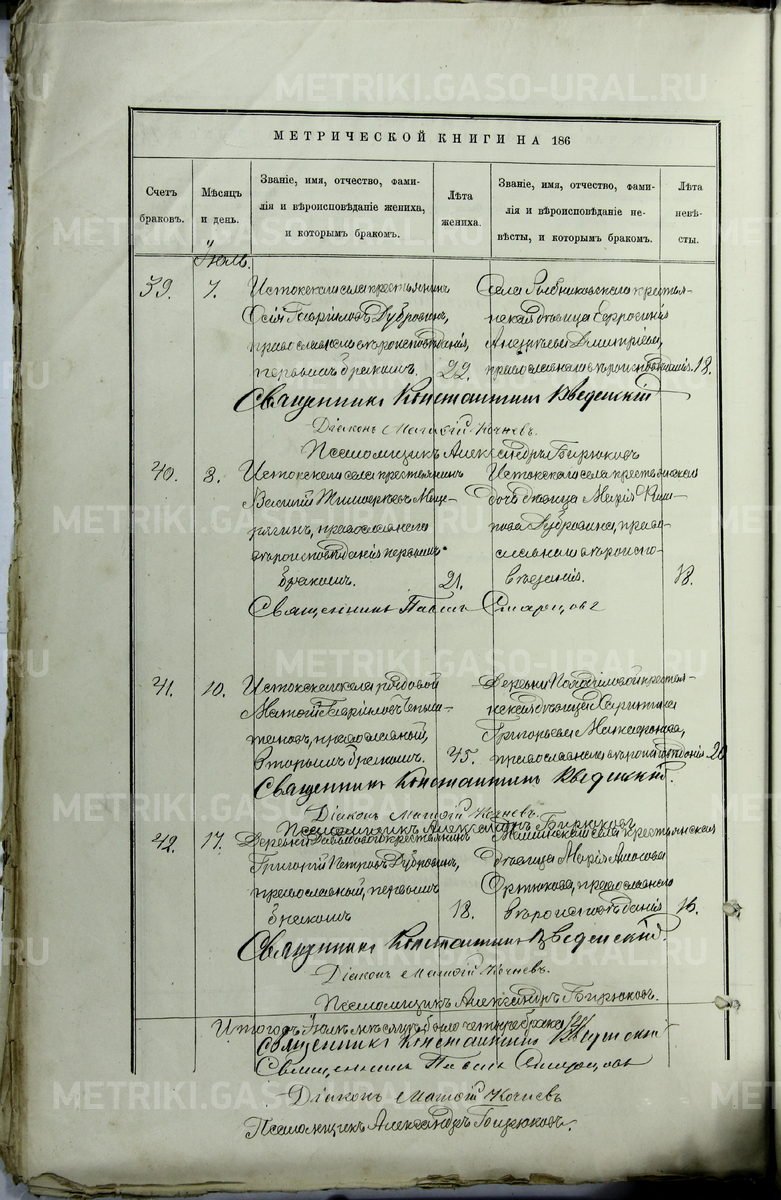 МЕТРИЧЕСКОЙ КНИГИ НА 186
Счетъ
браковъ.
Мѣсяцъ
и день.
Званіе, имя, отчество, фами-
лія и вѣроисповѣданіе жениха,
и которымъ бракомъ.
Лѣта
жениха.
Званіе, имя, отчество, фами-
лія и вѣроисповѣданіе не-
вѣсты, и которымъ бракомъ.
Лѣта
невѣ-
сты.
Іюль.
39. 7.
Истокскаго села крестьянинъ
Осія Гавріиловъ Дубровинъ,
православнаго вѣроисповѣданія,
первымъ бракомъ. 22.
Села Рыбниковскаго крестья-
нская дѣвица Евфросинія
православнаго вѣроисповѣданія 18.
Священникъ Константинъ Введенскій
Діаконъ Матѳій Кочневъ.
Псаломщикъ Александръ Бирюковъ
40. 8.
Истокскаго села крестьянинъ
Василій Тимоѳѣевъ Меще-
рягинъ, православнаго
вѣроисповѣданія первымъ
бракомъ. 21.
Истокскаго села крестьянская
дочь дѣвица Марія
Дубровина, право-
славнаго вѣроиспо-
вѣданія. 18.
Священникъ Павелъ Старцовъ
41. 10.
Истокскаго села рядовой
Матѳій Гавріиловъ
православной,
вторымъ бракомъ. 45.
Деревни крестья-
нская дѣвица Харитина
Григорьева
православнаго вѣроисповѣданія 20
Священникъ Константинъ Введенскій.
Діаконъ Матѳій Кочневъ.
Псаломщикъ Александръ Бирюковъ
42. 17.
Деревни крестьянинъ
Григорій Петровъ Дубровинъ,
православной, первымъ
бракомъ 18.
села крестьянская
дѣвица Марія
православнаго
вѣроисповѣданія 16.
Священникъ Константинъ Введенскій.
Діаконъ Матѳій Кочневъ.
Псаломщикъ Александръ Бирюковъ.
Итого въ Іюлѣ мѣсяцѣ было четыре брака
Священникъ Константинъ Введенскій
Священникъ Павелъ Старцовъ
Діаконъ Матѳій Кочневъ
Псаломщикъ Александръ Бирюковъ.
METRIKI.GASO-URAL.RU